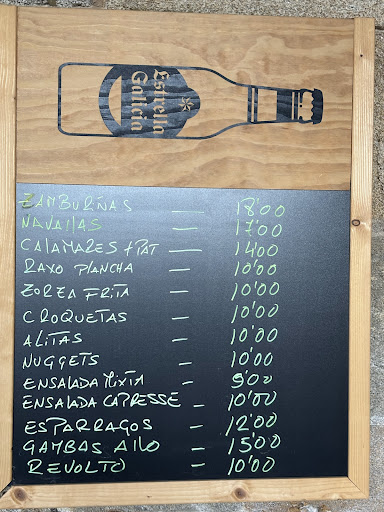 Estrella
Galicia
ZAMBURIÑAS — 18'00
NAVAJAS — 17'00
CALAMARES + PAT — 14'00
RAXO PLANCHA — 10'00
ZORZA FRITA — 10'00
CROQUETAS — 10'00
ALITAS — 10'00
NUGGETS — 10'00
ENSALADA MIXTA — 9'00
ENSALADA CAPRESSE — 10'00
ESPARRAGOS — 12'00
GAMBAS AILO — 15'00
REVOLTO — 10'00